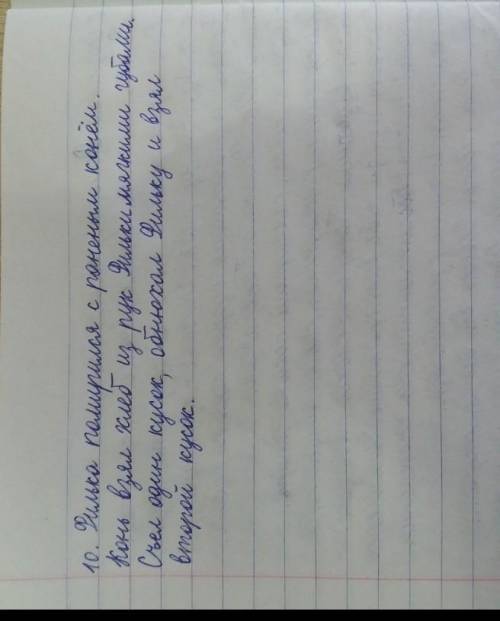 10. Филька помирился с раненым конём.
Конь взял хлеб из рук Фильки мягкими губами.
Съел один кусок, обнюхал Фильку и взял
второй кусок.